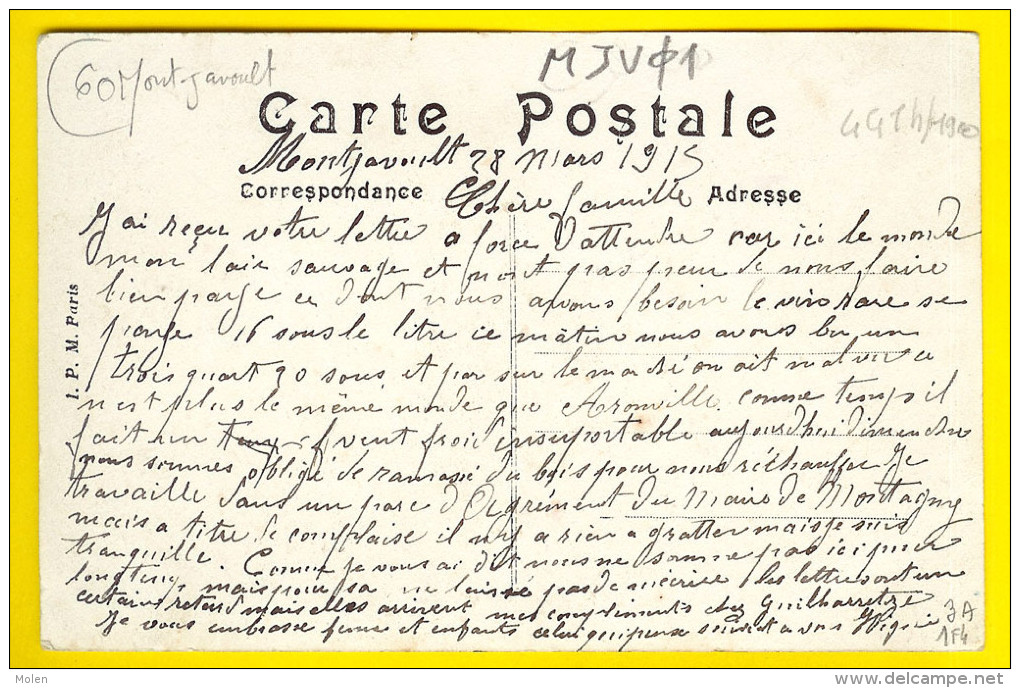 60 Montjavoult
MJVØ1
Carte Postale
Montjavoult 28 mars 1915
Correspondance Chère famille Adresse
J'ai reçu votre lettre a force D'attendre car ici le monde
mon lair sauvage et mont pas peur de nous faire
bien payé ce dont nous avons besoin le vin rare se
paye 16 sous le litre ce matin nous avons bu un
trois quart 30 sous et par sur le marché on ait mal vue ce
n'est plus le même monde que Aronville comme temps il
fait un vent froid insuportable aujourdhui dimanche
nous sommes obligé de ramassé du bois pour nous réchauffer Je
travaille dans un parc d'Agrément du Maire de Montagny
mais a titre de complaise il n'y a rien a gratter mais je suis
tranquille. Comme je vous ai dit nous ne somme pas ici pour
longtemp, mais pour sa ne laissé pas de m'écrire les lettre ont un
certains retard mais elles arrivent mes compliments chez Guilharretze
Je vous embrasse femme et enfants celui qui pense souvent a vous
I. P. M. Paris
3A
1F4
Molen
delcampe.net